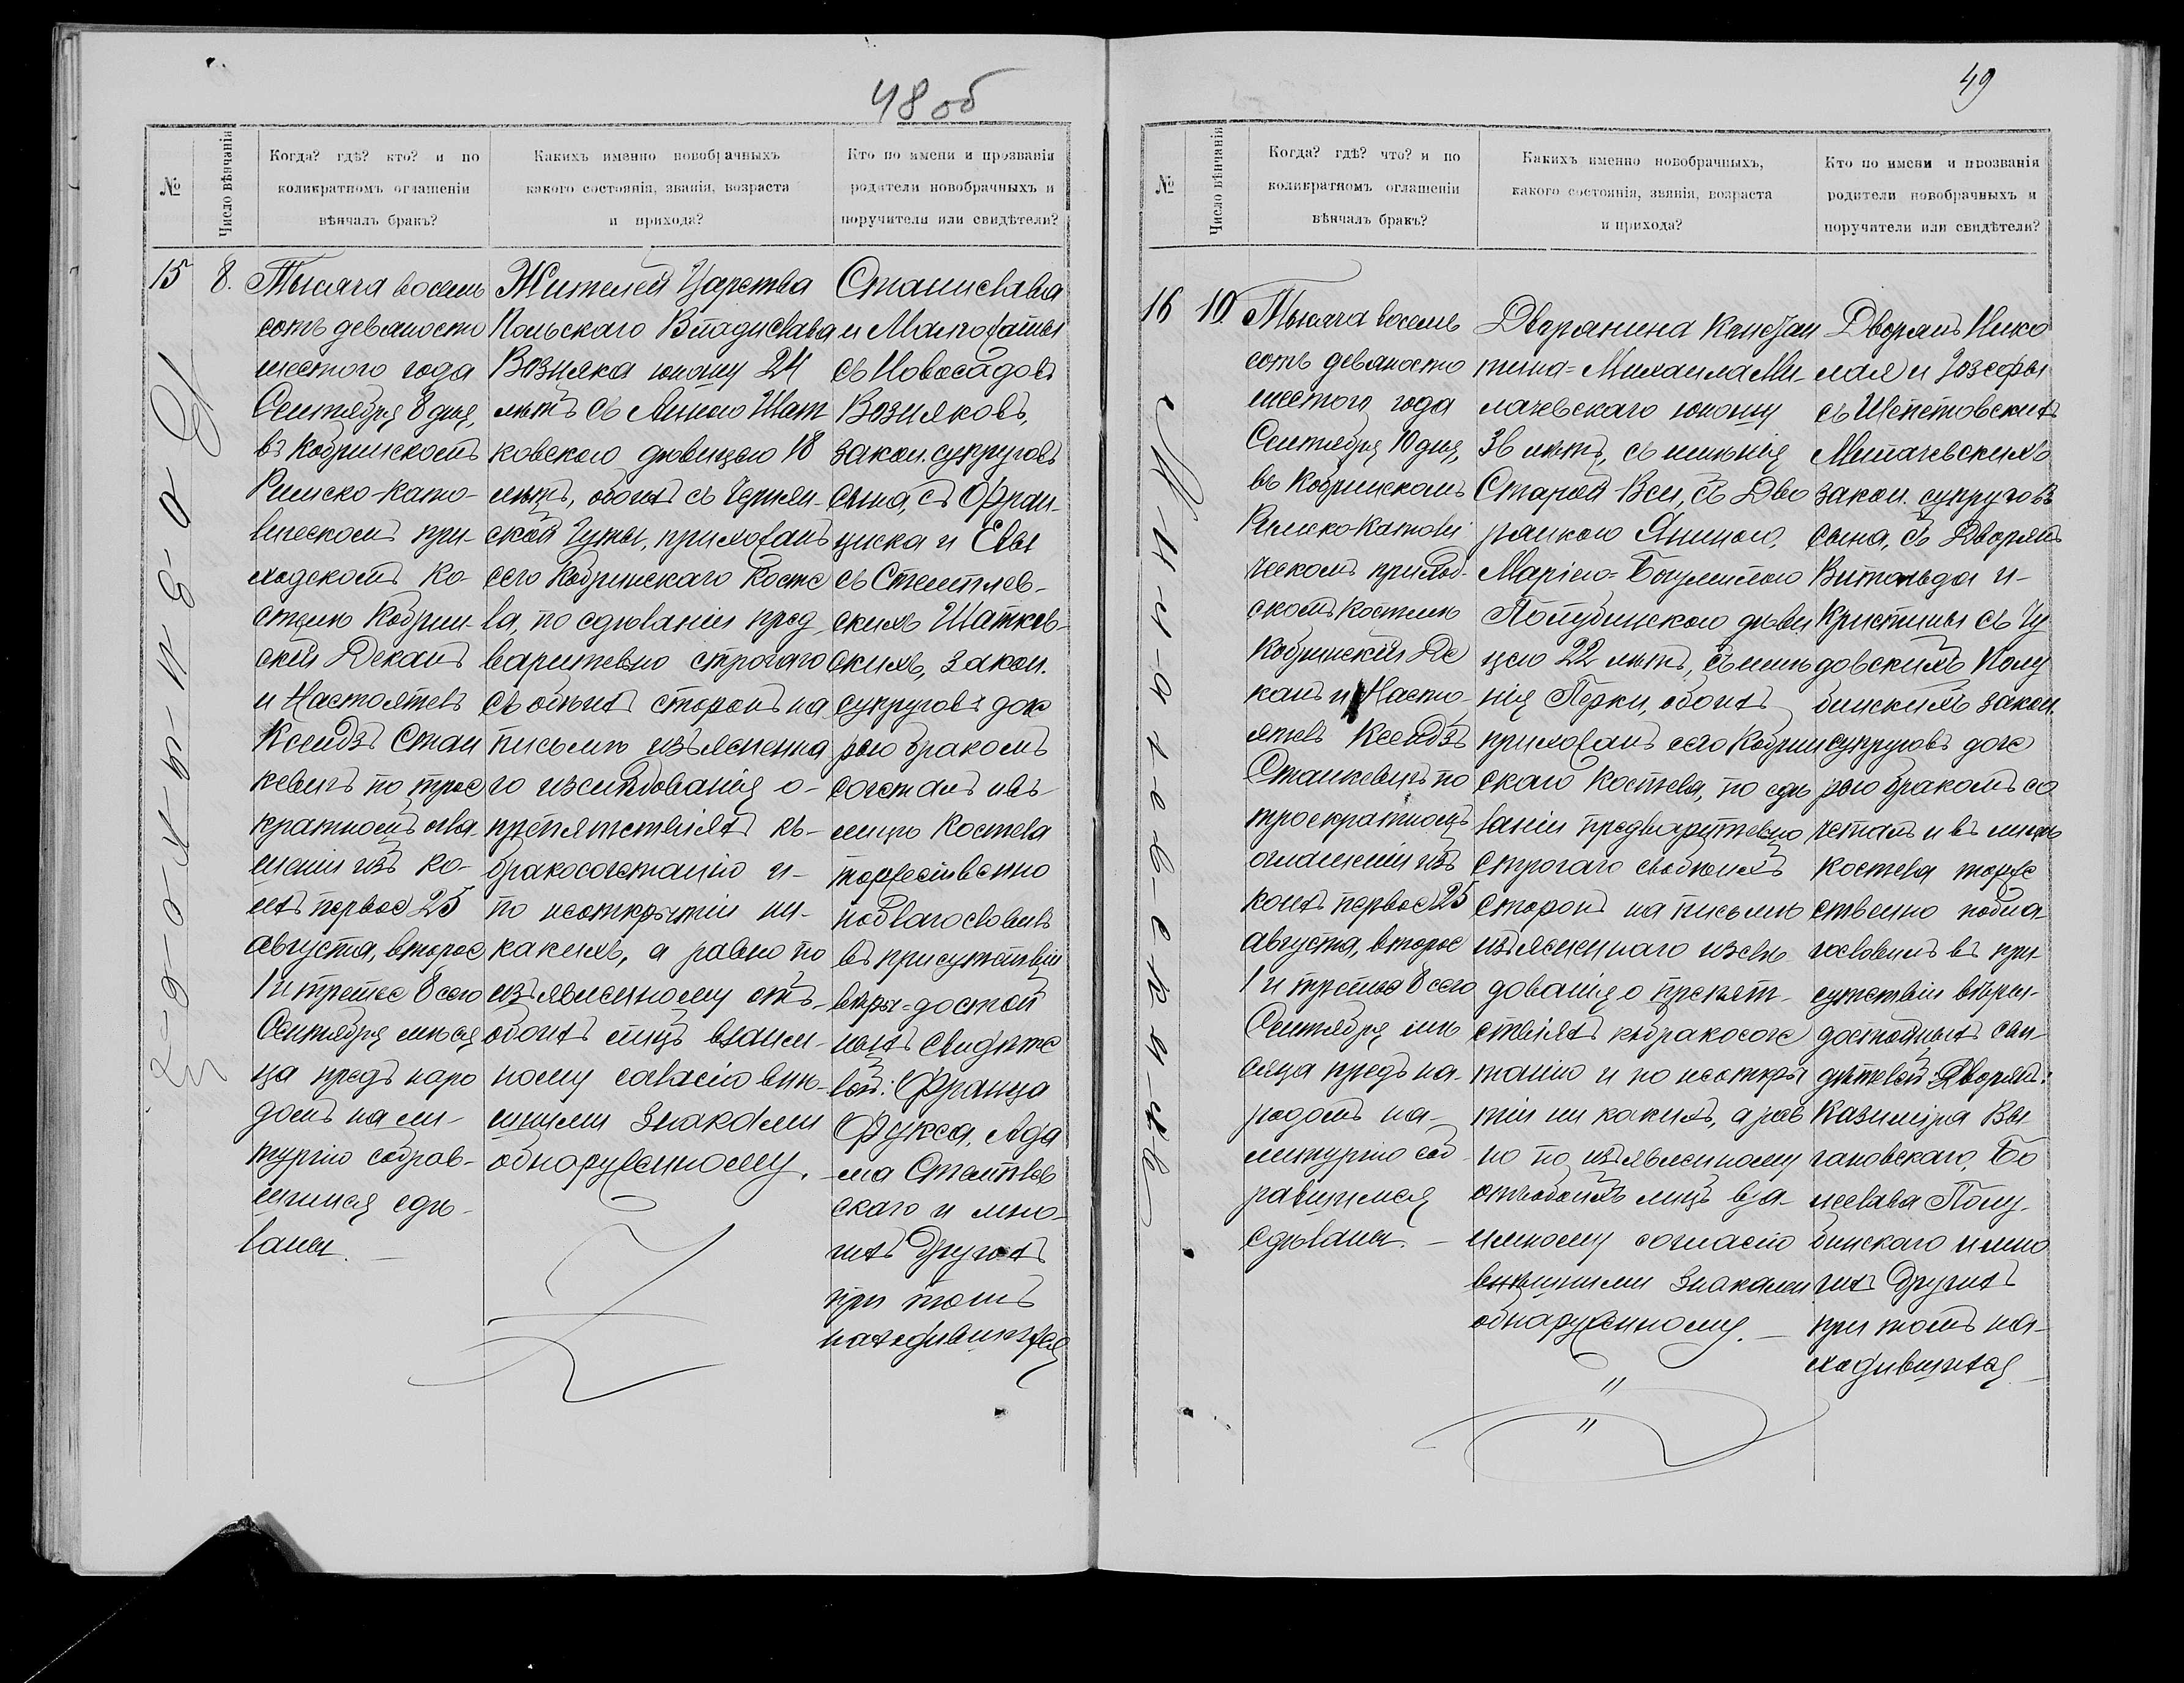 48 об
№
Число вѣнчанія
Когда? гдѣ? кто? и по
коликратномъ оглашеніи
вѣнчалъ бракъ?
Какихъ именно новобрачныхъ
какого состоянія, званія, возраста
и прихода?
Кто по имени и прозванія
родители новобрачныхъ и
поручители или свидѣтели?
15
8.
Тысяча восемь
сотъ девяносто
шестого года
Сентября 8 дня,
въ Кобринскомъ
Римско-Като-
лическомъ при-
ходскомъ Ко-
стелѣ Кобрин-
скій Деканъ
и Настоятель
Ксендзъ Стан
кевичъ по трое
кратномъ огла
шеніи изъ ко-
ихъ первое 25
августа, второе
1 и третье 8 сего
Сентября мѣся
ца предъ наро
домъ на ли-
тургію собрав-
шимся сдѣ-
ланы.
Жителей Царства
Польскаго Владислава
Возняка юношу 24
лѣтъ съ Анною Шат
ковскою дѣвицею 18
лѣтъ, обоихъ съ
прихожанъ
сего Кобринскаго Косте
ла, по сдѣланіи пред
варительно строгаго
съ обѣихъ сторонъ на
письмѣ изъясненна
го изслѣдованія о-
препятствіяхъ къ-
бракосочетанію и-
по неоткрытіи ни-
какихъ, а равно по
изъявленному отъ-
обоихъ лицъ взаим-
ному согласію внѣ-
шними знаками
обнаруженному.
Станислава
и Малгожаты
съ Новосадовъ
Возняковъ,
закон. супруговъ
сына, съ Фран-
циска и Евы
съ Стемплев-
скихъ Шатков-
скихъ, закон.
супруговъ доче
рью бракомъ
сочеталъ и въ
лицѣ Костела
торжественно
поблагословилъ
въ присутствіи
вѣры-достой
ныхъ Свидѣте
лей: Франца
Фукса, Ада
ма Стемплев
скаго и мно-
гихъ другихъ
при томъ
находившихся
49
№
Число вѣнчанія
Когда? гдѣ? что? и по
коликратномъ оглашеніи
вѣнчалъ бракъ?
Какихъ именно новобрачныхъ,
какого состоянія, званія, возраста
и прихода?
Кто по имени и прозванія
родители новобрачныхъ и
поручители или свидѣтели?
16
10.
Тысяча восемь
сотъ девяносто
шестого года
Сентября 10 дня,
въ Кобринскомъ
Римско-Католи
ческомъ приход-
скомъ костелѣ
Кобринскій Де
канъ и Насто-
ятель Ксендзъ
Станкевичъ по
троекратномъ
оглашеніи изъ
коихъ первое 25
августа, второе
1 и третье 8 сего
Сентября мѣ
сяца предъ на-
родомъ на-
литургію соб-
равшимся
сдѣланы. -
Дворянина Констан
тина-Михаила Ми-
лачевскаго юношу
36 лѣтъ, съ имѣнія
Старой Вси, съ Дво
рянкою Яниною,
Маріею-Богумилою
Полубинскою дѣви
цею 22 лѣтъ, съ имѣ
нія Перки, обоихъ
прихожанъ сего Кобрин
скаго Костела, по сдѣ
ланіи предварительно
строгаго съ обѣихъ
сторонъ на письмѣ
изъясненнаго изслѣ-
дованія о препят-
ствіяхъ къ бракосоче
танію и по неоткры
тіи ни какихъ, а рав
но по изъявленному
отъ обоихъ лицъ вза-
имному согласію
внѣшними знаками
обнаруженному. -
Дворянъ Нико
лая и Іозефы
съ Шепетовскихъ
Милачевскихъ
закон. супруговъ
сына, съ Дворянъ
Витольда и-
Кристины съ Гу
довскихъ Полу
бинскихъ закон.
супруговъ доче
рью бракомъ со
четалъ и въ лицѣ
костела торже
ственно побла-
гословилъ въ при-
сутствіи вѣры-
достойныхъ сви-
дѣтелей: Дворянъ:
Казиміра Вы
гановскаго, Бо
леслава Полу-
бинскаго и мно
гихъ другихъ
при томъ на-
ходившихся